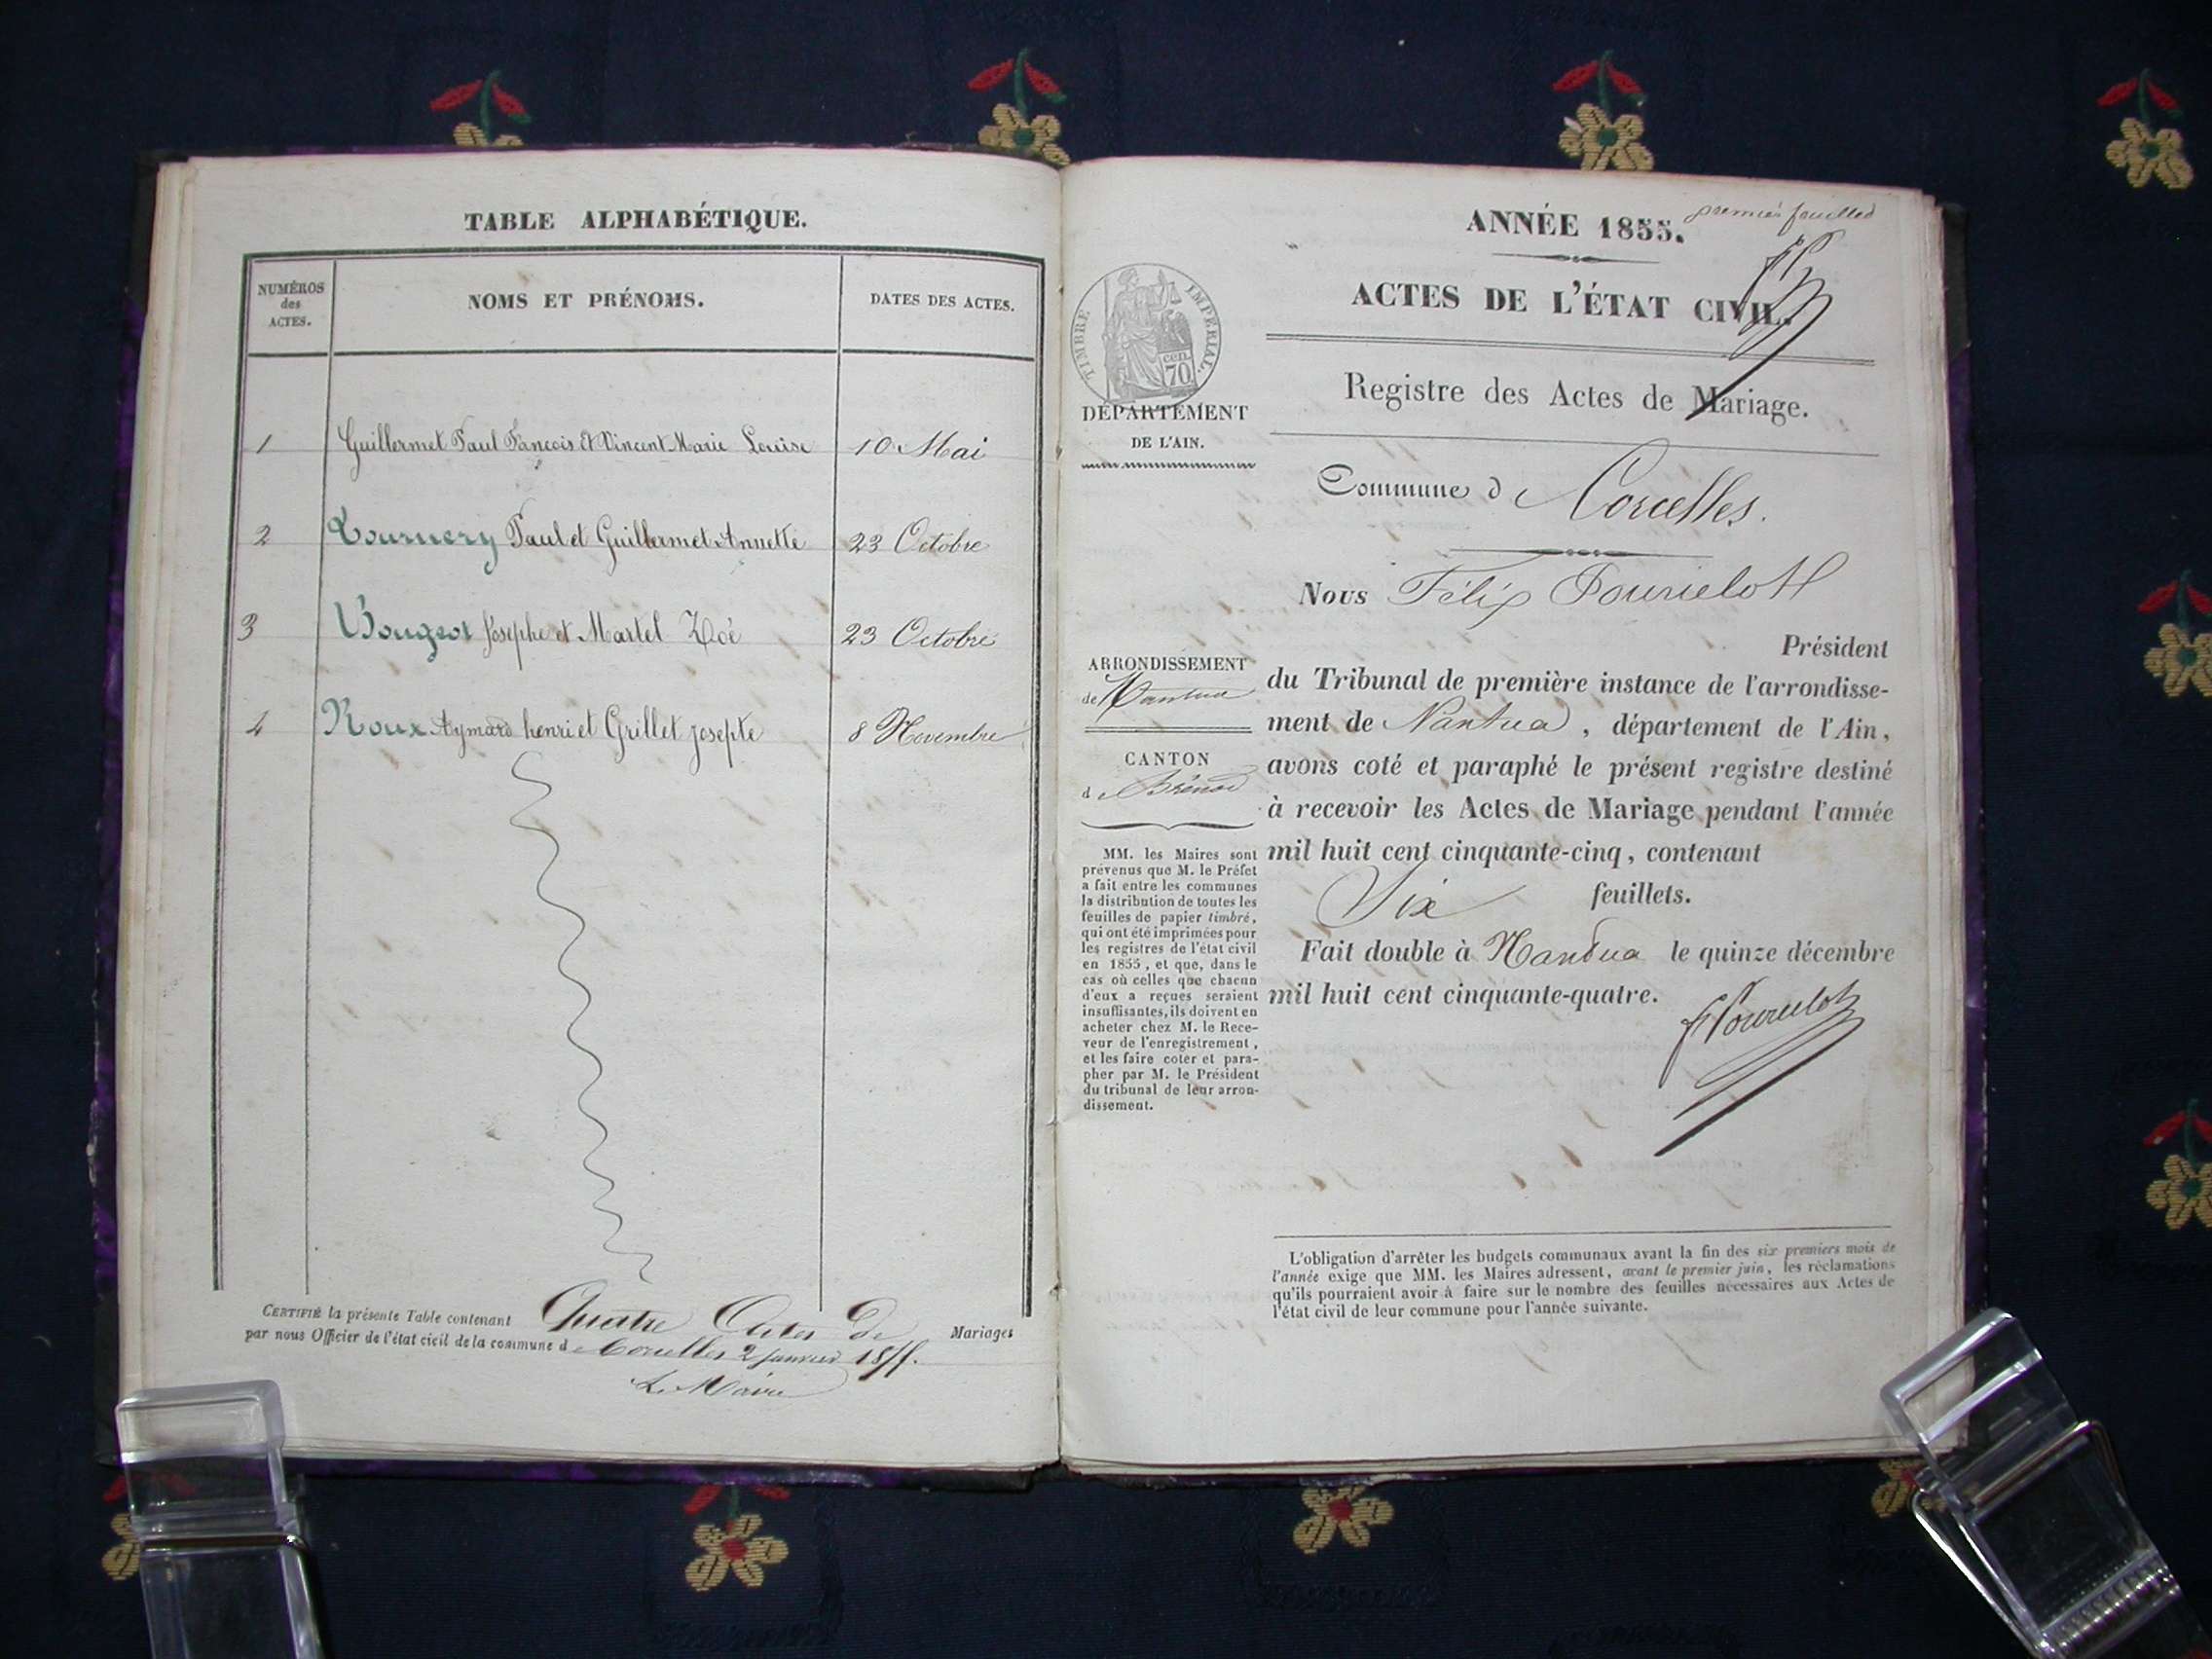 TABLE ALPHABÉTIQUE.
NUMÉROS
des
ACTES.
NOMS ET PRÉNOMS.
DATES DES ACTES.
1 Guillermet Paul François Et Vincent Marie Louise 10 Mai
2 Tournery Paul et Guillermet Annette 23 Octobre
3 Bougeot Josephe et Martel Zoé 23 Octobre
4 Roux Aymard henri et Grillet josepte 8 Novembre
CERTIFIÉ la présente Table contenant Quatre Actes De Mariages
par nous Officier de l'état civil de la commune d Corcelles 2 janvier
Le Maire
ANNÉE 1855.
premier
ACTES DE L'ÉTAT CIVIL.
Registre des Actes de Mariage.
Commune d Corcelles.
TIMBRE IMPÉRIAL.
cen.
70
DÉPARTEMENT
DE L'AIN.
ARRONDISSEMENT
de Nantua
CANTON
d Brénod
MM. les Maires sont
prévenus que M. le Préfet
a fait entre les communes
la distribution de toutes les
feuilles de papier timbré,
qui ont été imprimées pour
les registres de l'état civil
en 1855, et que, dans le
cas où celles que chacun
d'eux a reçues seraient
insuffisantes, ils doivent en
acheter chez M. le Rece-
veur de l'enregistrement,
et les faire coter et para-
pher par M. le Président
du tribunal de leur arron-
dissement.
Nous Félix
Président
du Tribunal de première instance de l'arrondisse-
ment de Nantua, département de l'Ain,
avons coté et paraphé le présent registre destiné
à recevoir les Actes de Mariage pendant l'année
mil huit cent cinquante-cinq, contenant
Six feuillets.
Fait double à Nantua le quinze décembre
mil huit cent cinquante-quatre.
L'obligation d'arrêter les budgets communaux avant la fin des six premiers mois de
l'année exige que MM. les Maires adressent, avant le premier juin, les réclamations
qu'ils pourraient avoir à faire sur le nombre des feuilles nécessaires aux Actes de
l'état civil de leur commune pour l'année suivante.